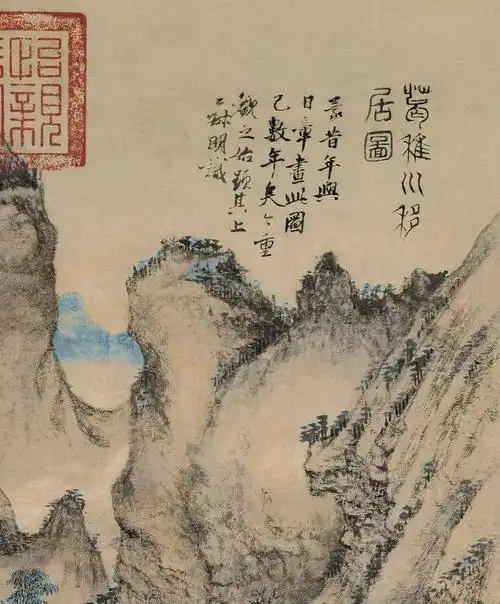 葛稚川移
居圖
蒙昔年與
日章畫此圖
已數年矣今重
觀之始題其上
王叔明識
怡親